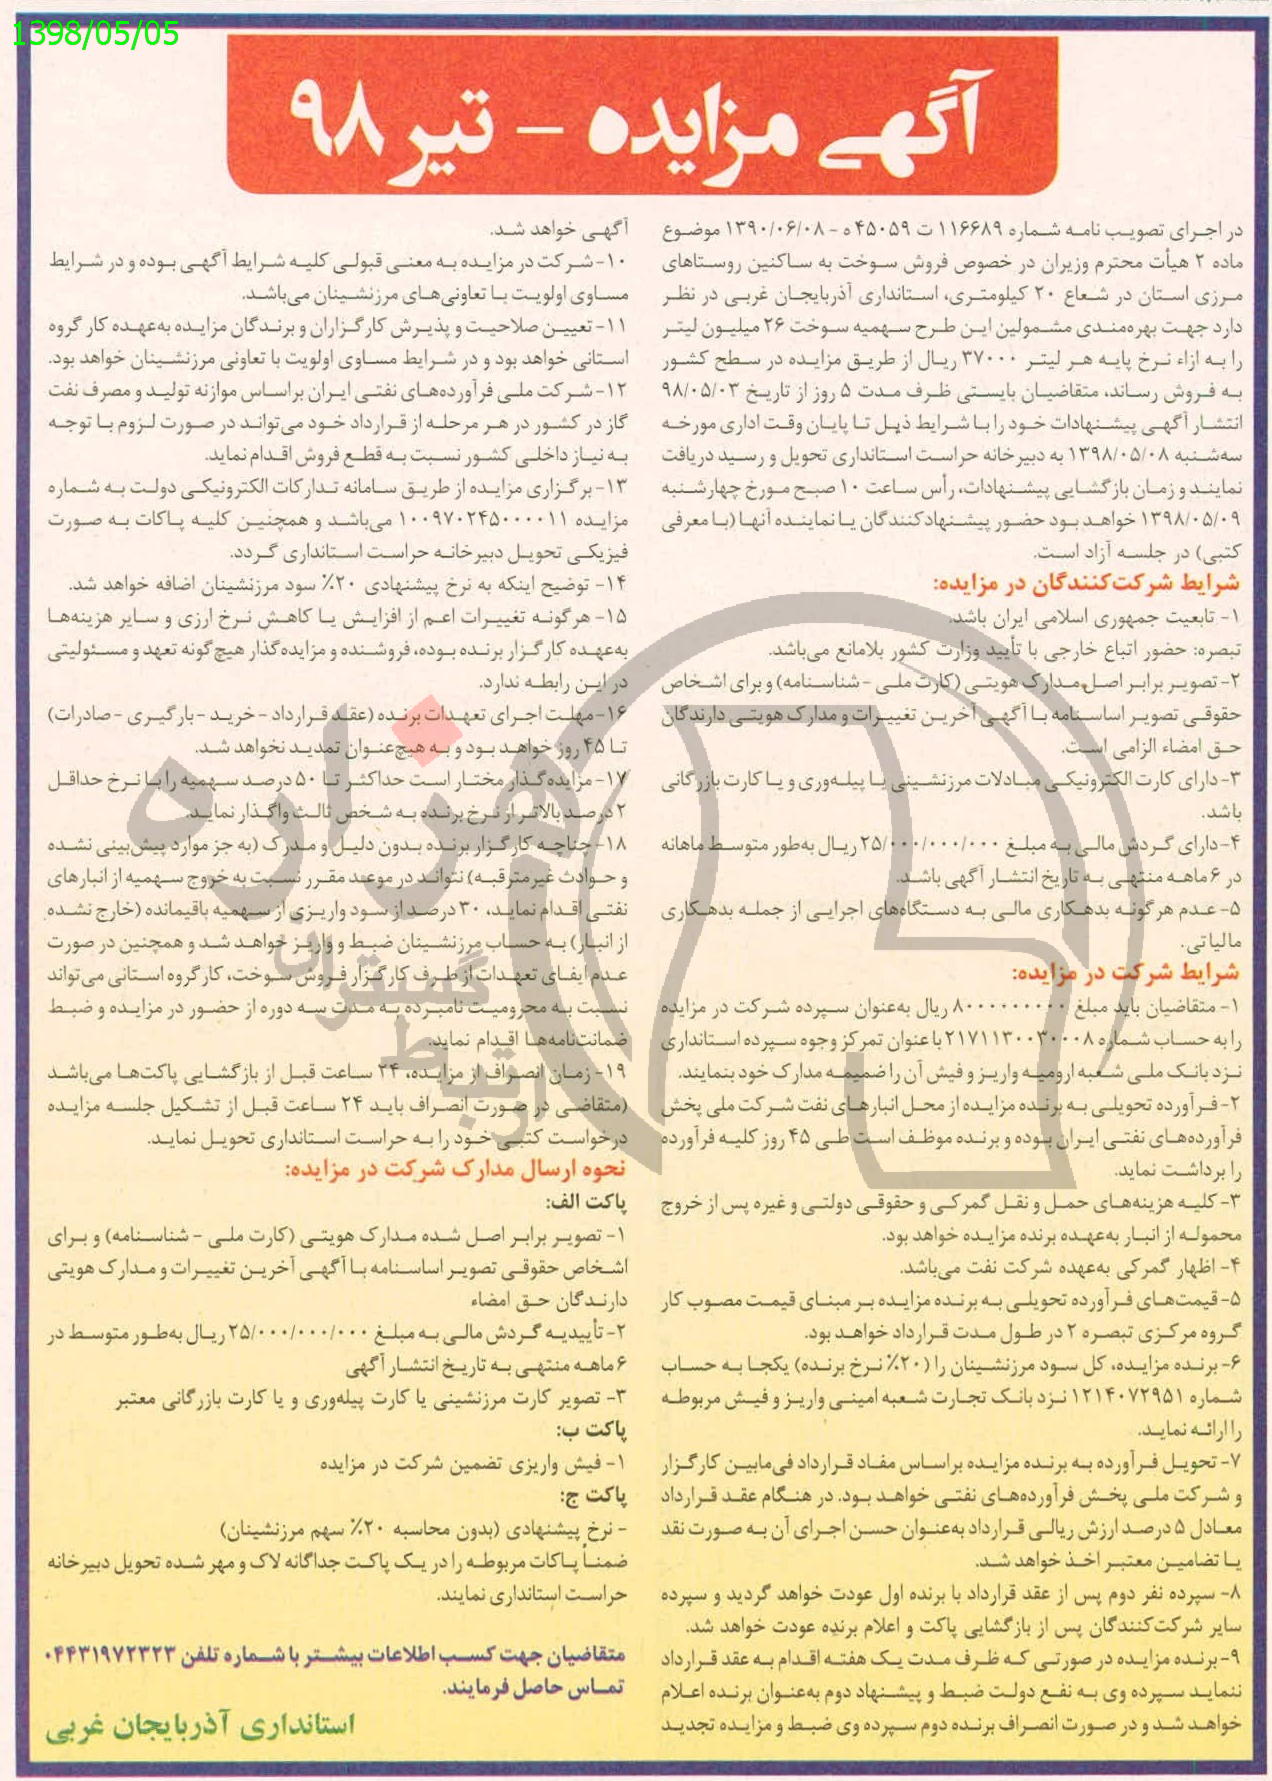 1398/05/05
آگهی مزایده - تیر ۹۸
در اجرای تصویب نامه شماره ۱۱۶۶۸۹ ت ۴۵۰۵۹ ه - ۱۳۹۰/۰۶/۰۸ موضوع
ماده ۲ هیأت محترم وزیران در خصوص فروش سوخت به ساکنین روستاهای
مرزی استان در شعاع ۲۰ کیلومتری، استانداری آذربایجان غربی در نظر
دارد جهت بهره‌مندی مشمولین این طرح سهمیه سوخت ۲۶ میلیون لیتر
را به ازاء نرخ پایه هر لیتر ۳۷۰۰۰ ریال از طریق مزایده در سطح کشور
به فروش رساند، متقاضیان بایستی ظرف مدت ۵ روز از تاریخ ۹۸/۰۵/۰۳
انتشار آگهی پیشنهادات خود را با شرایط ذیل تا پایان وقت اداری مورخه
سه‌شنبه ۱۳۹۸/۰۵/۰۸ به دبیرخانه حراست استانداری تحویل و رسید دریافت
نمایند و زمان بازگشایی پیشنهادات، رأس ساعت ۱۰ صبح مورخ چهارشنبه
۱۳۹۸/۰۵/۰۹ خواهد بود حضور پیشنهادکنندگان یا نماینده آنها (با معرفی
کتبی) در جلسه آزاد است.
شرایط شرکت‌کنندگان در مزایده:
۱- تابعیت جمهوری اسلامی ایران باشد.
تبصره: حضور اتباع خارجی با تأیید وزارت کشور بلامانع می‌باشد.
۲- تصویر برابر اصل مدارک هویتی (کارت ملی - شناسنامه) و برای اشخاص
حقوقی تصویر اساسنامه با آگهی آخرین تغییرات و مدارک هویتی دارندگان
حق امضاء الزامی است.
۳- دارای کارت الکترونیکی مبادلات مرزنشینی یا پیله‌وری و یا کارت بازرگانی
باشد.
۴- دارای گردش مالی به مبلغ ۲۵/۰۰۰/۰۰۰/۰۰۰ ریال به‌طور متوسط ماهانه
در ۶ ماهه منتهی به تاریخ انتشار آگهی باشد.
۵- عدم هرگونه بدهکاری مالی به دستگاه‌های اجرایی از جمله بدهکاری
مالیاتی.
شرایط شرکت در مزایده:
۱- متقاضیان باید مبلغ ۸۰۰۰۰۰۰۰۰۰۰ ریال به‌عنوان سپرده شرکت در مزایده
را به حساب شماره ۲۱۷۱۱۳۰۰۳۰۰۰۸ با عنوان تمرکز وجوه سپرده استانداری
نزد بانک ملی شعبه ارومیه واریز و فیش آن را ضمیمه مدارک خود بنمایند.
۲- فرآورده تحویلی به برنده مزایده از محل انبارهای نفت شرکت ملی پخش
فرآورده‌های نفتی ایران بوده و برنده موظف است طی ۴۵ روز کلیه فرآورده
را برداشت نماید.
۳- کلیه هزینه‌های حمل و نقل گمرکی و حقوقی دولتی و غیره پس از خروج
محموله از انبار به‌عهده برنده مزایده خواهد بود.
۴- اظهار گمرکی به‌عهده شرکت نفت می‌باشد.
۵- قیمت‌های فرآورده تحویلی به برنده مزایده بر مبنای قیمت مصوب کار
گروه مرکزی تبصره ۲ در طول مدت قرارداد خواهد بود.
۶- برنده مزایده، کل سود مرزنشینان را (۲۰٪ نرخ برنده) یکجا به حساب
شماره ۱۲۱۴۰۷۲۹۵۱ نزد بانک تجارت شعبه امینی واریز و فیش مربوطه
را ارائه نماید.
۷- تحویل فرآورده به برنده مزایده براساس مفاد قرارداد فی‌مابین کارگزار
و شرکت ملی پخش فرآورده‌های نفتی خواهد بود. در هنگام عقد قرارداد
معادل ۵ درصد ارزش ریالی قرارداد به‌عنوان حسن اجرای آن به صورت نقد
یا تضامین معتبر اخذ خواهد شد.
۸- سپرده نفر دوم پس از عقد قرارداد با برنده اول عودت خواهد گردید و سپرده
سایر شرکت‌کنندگان پس از بازگشایی پاکت و اعلام برنده عودت خواهد شد.
۹- برنده مزایده در صورتی که ظرف مدت یک هفته اقدام به عقد قرارداد
ننماید سپرده وی به نفع دولت ضبط و پیشنهاد دوم به‌عنوان برنده اعلام
خواهد شد و در صورت انصراف برنده دوم سپرده وی ضبط و مزایده تجدید
آگهی خواهد شد.
۱۰- شرکت در مزایده به معنی قبولی کلیه شرایط آگهی بوده و در شرایط
مساوی اولویت با تعاونی‌های مرزنشینان می‌باشد.
۱۱- تعیین صلاحیت و پذیرش کارگزاران و برندگان مزایده به‌عهده کار گروه
استانی خواهد بود و در شرایط مساوی اولویت با تعاونی مرزنشینان خواهد بود.
۱۲- شرکت ملی فرآورده‌های نفتی ایران براساس موازنه تولید و مصرف نفت
گاز در کشور در هر مرحله از قرارداد خود می‌تواند در صورت لزوم با توجه
به نیاز داخلی کشور نسبت به قطع فروش اقدام نماید.
۱۳- برگزاری مزایده از طریق سامانه تدارکات الکترونیکی دولت به شماره
مزایده ۱۰۰۹۷۰۲۴۵۰۰۰۰۱۱ می‌باشد و همچنین کلیه پاکات به صورت
فیزیکی تحویل دبیرخانه حراست استانداری گردد.
۱۴- توضیح اینکه به نرخ پیشنهادی ۲۰٪ سود مرزنشینان اضافه خواهد شد.
۱۵- هرگونه تغییرات اعم از افزایش یا کاهش نرخ ارزی و سایر هزینه‌ها
به‌عهده کارگزار برنده بوده، فروشنده و مزایده‌گذار هیچ‌گونه تعهد و مسئولیتی
در این رابطه ندارد.
۱۶- مهلت اجرای تعهدات برنده (عقد قرارداد - خرید - بارگیری - صادرات)
تا ۴۵ روز خواهد بود و به هیچ‌عنوان تمدید نخواهد شد.
۱۷- مزایده‌گذار مختار است حداکثر تا ۵۰ درصد سهمیه را با نرخ حداقل
۲ درصد بالاتر از نرخ برنده به شخص ثالث واگذار نماید.
۱۸- چنانچه کارگزار برنده بدون دلیل و مدرک (به جز موارد پیش‌بینی نشده
و حوادث غیرمترقبه) نتواند در موعد مقرر نسبت به خروج سهمیه از انبارهای
نفتی اقدام نماید، ۳۰ درصد از سود واریزی از سهمیه باقیمانده (خارج نشده
از انبار) به حساب مرزنشینان ضبط و واریز خواهد شد و همچنین در صورت
عدم ایفای تعهدات از طرف کارگزار فروش سوخت، کارگروه استانی می‌تواند
نسبت به محرومیت نامبرده به مدت سه دوره از حضور در مزایده و ضبط
ضمانت‌نامه‌ها اقدام نماید.
۱۹- زمان انصراف از مزایده، ۲۴ ساعت قبل از بازگشایی پاکت‌ها می‌باشد
(متقاضی در صورت انصراف باید ۲۴ ساعت قبل از تشکیل جلسه مزایده
درخواست کتبی خود را به حراست استانداری تحویل نماید.
نحوه ارسال مدارک شرکت در مزایده:
پاکت الف:
۱- تصویر برابر اصل شده مدارک هویتی (کارت ملی - شناسنامه) و برای
اشخاص حقوقی تصویر اساسنامه با آگهی آخرین تغییرات و مدارک هویتی
دارندگان حق امضاء
۲- تأییدیه گردش مالی به مبلغ ۲۵/۰۰۰/۰۰۰/۰۰۰ ریال به‌طور متوسط در
۶ ماهه منتهی به تاریخ انتشار آگهی
۳- تصویر کارت مرزنشینی یا کارت پیله‌وری و یا کارت بازرگانی معتبر
پاکت ب:
۱- فیش واریزی تضمین شرکت در مزایده
پاکت ج:
- نرخ پیشنهادی (بدون محاسبه ۲۰٪ سهم مرزنشینان)
ضمناً پاکات مربوطه را در یک پاکت جداگانه لاک و مهر شده تحویل دبیرخانه
حراست استانداری نمایند.
متقاضیان جهت کسب اطلاعات بیشتر با شماره تلفن ۰۴۴۳۱۹۷۲۳۲۳
تماس حاصل فرمایند.
استانداری آذربایجان غربی
هزاره
گستری
ارتباط